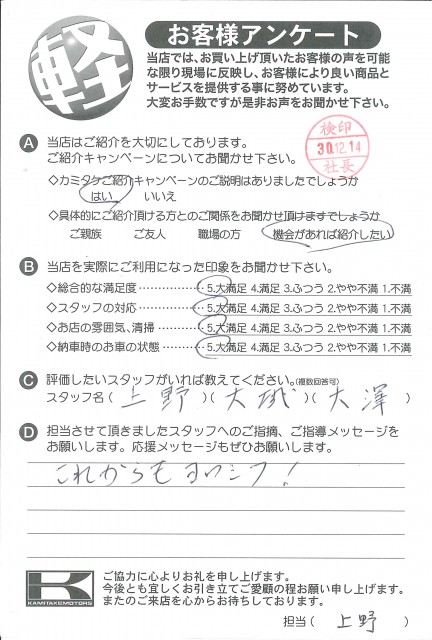 軽
お客様アンケート
当店では、お買い上げ頂いたお客様の声を可能
な限り現場に反映し、お客様により良い商品と
サービスを提供する事に努めています。
大変お手数ですが是非お声をお聞かせ下さい。
検印
30.12.14
社長
A 当店はご紹介を大切にしております。
ご紹介キャンペーンについてお聞かせ下さい。
◇カミタケご紹介キャンペーンのご説明はありましたでしょうか
はい いいえ
◇具体的にご紹介頂ける方とのご関係をお聞かせ頂けますでしょうか
ご親族 ご友人 職場の方 機会があれば紹介したい
B 当店を実際にご利用になった印象をお聞かせ下さい。
◇総合的な満足度 ………… 5.大満足 4.満足 3.ふつう 2.やや不満 1.不満
◇スタッフの対応 ………… 5.大満足 4.満足 3.ふつう 2.やや不満 1.不満
◇お店の雰囲気、清掃 ………… 5.大満足 4.満足 3.ふつう 2.やや不満 1.不満
◇納車時のお車の状態 ………… 5.大満足 4.満足 3.ふつう 2.やや不満 1.不満
C 評価したいスタッフがいれば教えてください。(複数回答可)
スタッフ名 ( 上野 )( 大城 )( 大澤 )
D 担当させて頂きましたスタッフへのご指摘、ご指導メッセージを
お願いします。応援メッセージもぜひお願いします。
これからもヨロシク!
K
KAMITAKEMOTORS
ご協力に心よりお礼を申し上げます。
今後とも宜しくお引き立てご愛顧の程お願い申し上げます。
またのご来店を心からお待ちしております。
担当 ( 上野 )